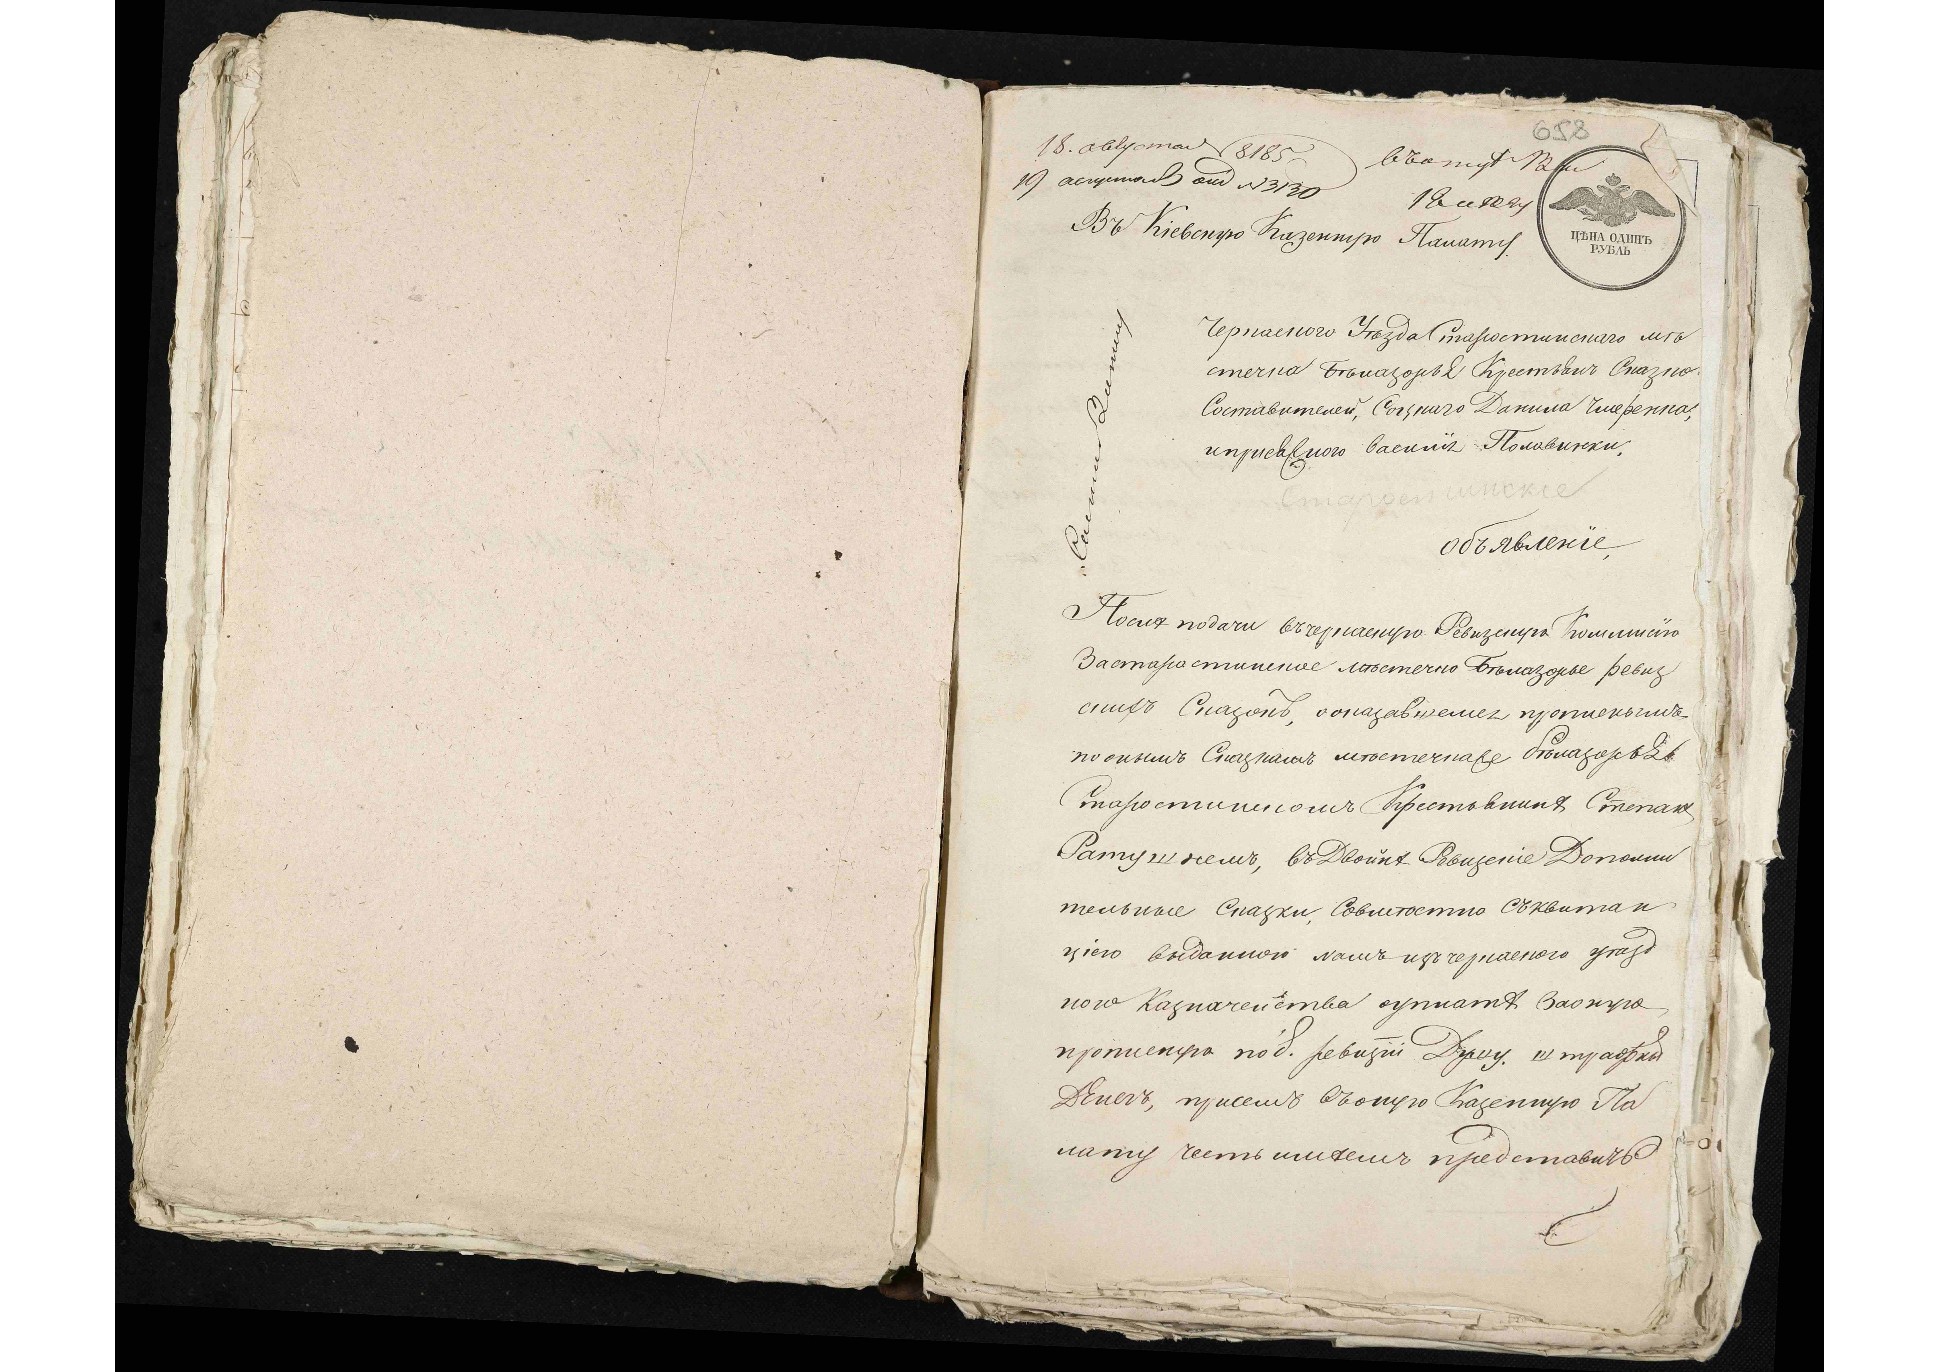 658
18. августа 8185
19 августа № 3130
ЦѢНА ОДИНЪ
РУБЛЬ
Въ Кіевскую Казенную Палату
Черкаского Уѣзда Старостинскаго мѣ
стечка Бѣлазорья Крестьянъ Сказко
Составителей, Соцкаго Данила
и присяжного Василія Половинки,
Старостинские
объявленіе,
Послѣ подачи въ черкаскую Ревизскую Коммисію
За старостинское мѣстечко Бѣлазорье ревиз
скихъ Сказокъ, о оказавшемся прописнымъ
по онымъ Сказкамъ мѣстечка Бѣлазорья
Старостинскомъ Крестьянинѣ Степанѣ
Ратушномъ, въ Двойнѣ Ревизскіе Дополни
тельные Сказки, Совмѣстно съ квитан
цією выданною намъ изъ черкаского уѣзд
ного Казначейства о уплатѣ За оную
прописную по 8. ревизіи Душу. штрафныхъ
Денегъ, при семъ въ оную Казенную Па
лату честь имѣемъ представить